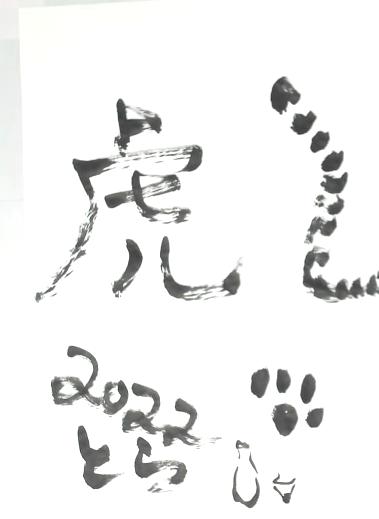 虎
2022
とら